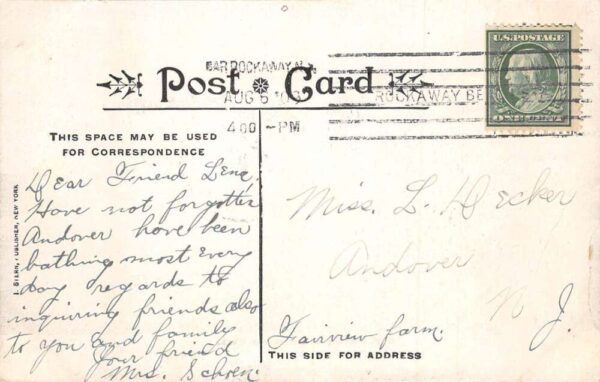 U.S. POSTAGE
ONE CENT
FAR ROCKAWAY N.Y.
AUG 6
4 00 - PM
ROCKAWAY BE
Post Card
THIS SPACE MAY BE USED
FOR CORRESPONDENCE
THIS SIDE FOR ADDRESS
Dear Friend Lena.
Have not forgotten
Andover have been
bathing most every
day regards to
inquiring friends also
to you and family
Your friend
Mrs.
Miss. L. Decker
Andover
N J.
Fairview farm.
STERN, PUBLISHER, NEW YORK